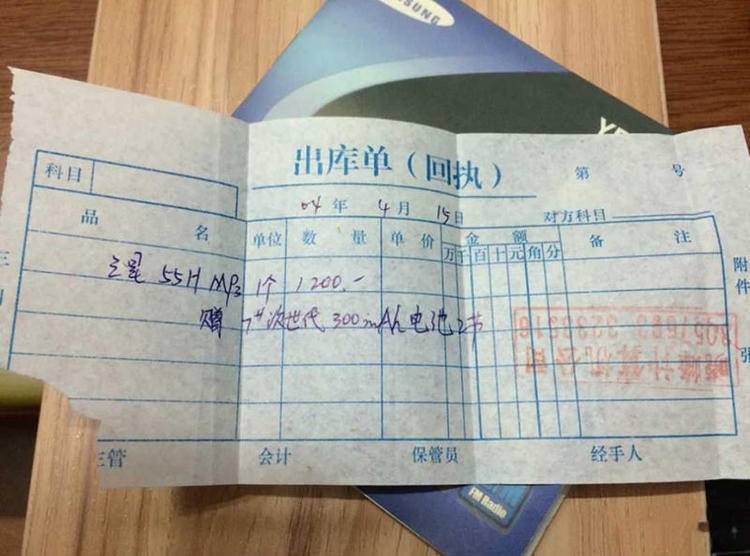 SUNG
出库单（回执）
第 号
科目
04 年 4 月 15 日
对方科目
品 名 单位 数 量 单 价 金 额 备 注
万 千 百 十 元 角 分
附件 张
三星 55H MP3 1个 1200.-
赠 次世代 300mAh 电池 2节
主管 会计 保管员 经手人
FM Radio